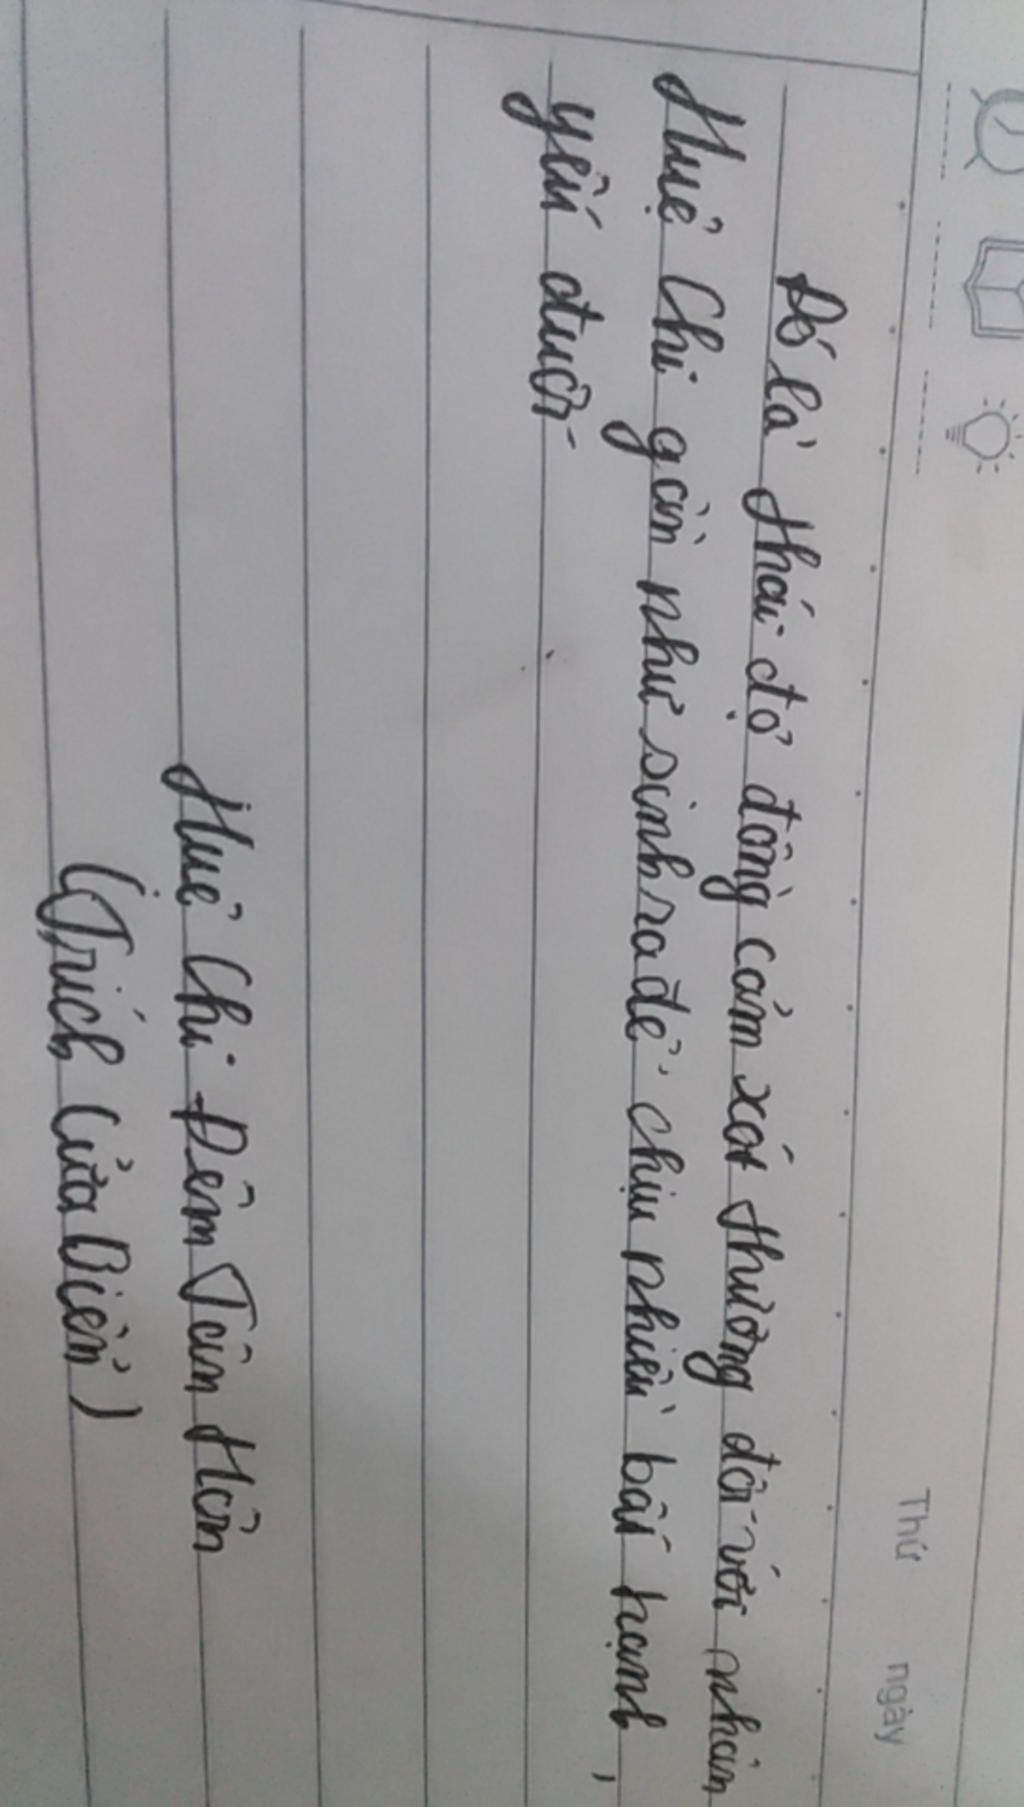 Thứ ngày
Đó là thái độ đồng cảm xót thương đối với nhân
Huệ Chi gần như sinh ra để chịu nhiều bất hạnh,
yếu đuối
Huệ Chi Đêm Tân Hôn
(Trích Cửa Biển)